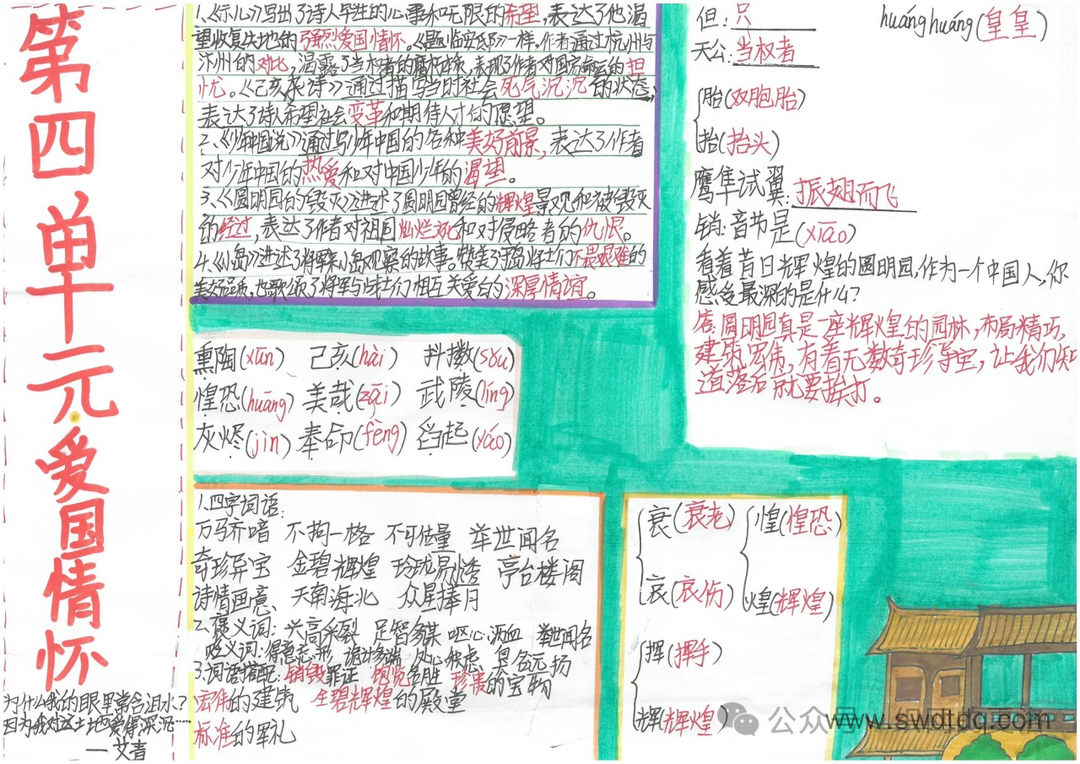 第四单元爱国情怀
为什么我的眼里常含泪水?
因为我对这土地爱得深沉……
—艾青
1.《示儿》写出了诗人毕生的心事和无限的希望,表达了他渴
望收复失地的强烈爱国情怀。《题临安邸》一样,作者通过杭州与
汴州的对比,揭露了当权者的腐朽,表现了作者对国家命运的担
忧。《己亥杂诗》通过描写当时社会死气沉沉的状态,
表达了诗人希望社会变革和期待人才的愿望。
2.《少年中国说》通过写少年中国的各种美好前景,表达了作者
对少年中国的热爱和对中国少年的渴望。
3.《圆明园的毁灭》讲述了圆明园曾经的辉煌景观和被毁灭
的经过,表达了作者对祖国灿烂文化和对侵略者的仇恨。
4.《小岛》讲述了将军来小岛观察的故事。赞美了守岛将士们不畏艰难的
美好品质,也歌颂了将军与战士们相互关爱的深厚情谊。
熏陶(xūn) 己亥(hài) 抖擞(sǒu)
惶恐(huáng) 美哉(zāi) 武陵(líng)
灰烬(jìn) 奉命(fèng) 舀起(yǎo)
1.四字词语:
万马齐喑 不拘一格 不可估量 举世闻名
奇珍异宝 金碧辉煌 玲珑剔透 亭台楼阁
诗情画意、天南海北 众星拱月
2.褒义词:兴高采烈 足智多谋 呕心沥血 举世闻名
贬义词:得意忘形 诡计多端 处心积虑 臭名远扬
3.词语搭配:销毁罪证 饱览景胜 珍贵的宝物
宏伟的建筑 金碧辉煌的殿堂
标准的军礼
但:只
天公:当权者
胎(双胞胎)
抬(抬头)
鹰隼试翼:振翅而飞
销:音节是(xiāo)
看着昔日辉煌的圆明园,作为一个中国人,你
感受最深的是什么?
答:圆明园真是一座辉煌的园林,布局精巧,
建筑宏伟,有着无数奇珍异宝,让我们知
道落后就要挨打。
huáng huáng(皇皇)
衰(衰老)
哀(哀伤)
惶(惶恐)
煌(辉煌)
挥(挥手)
辉(辉煌)
公众
www.swdtdq.com